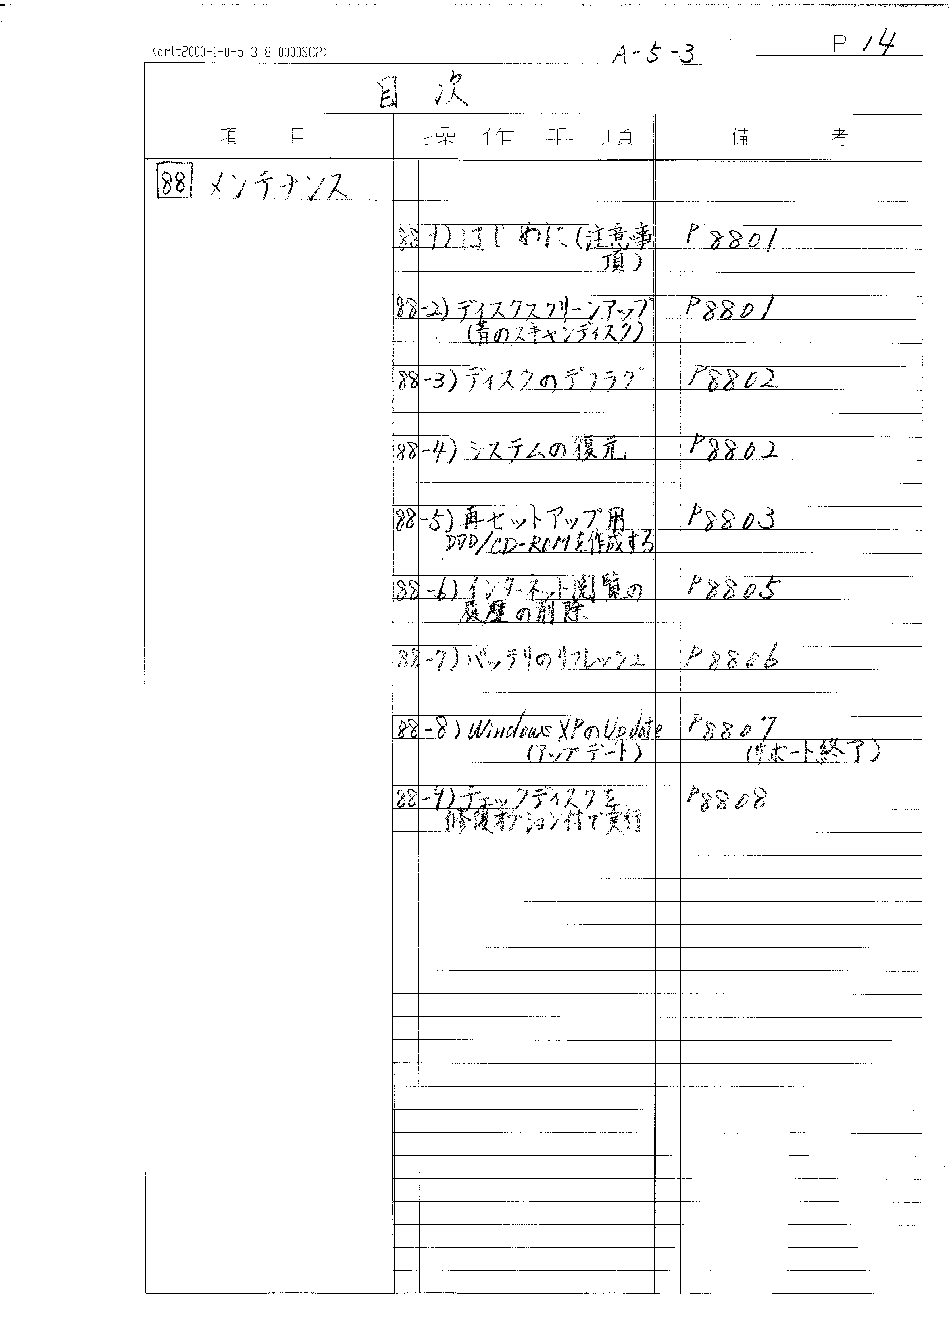 A-5-3
P 14
目 次
項 目 操 作 事 項 備 考
88 メンテナンス
88-1) はじめに(注意事 P8801
項)
88-2) ディスククリーンアップ P8801
(昔のスキャンディスク)
88-3) ディスクのデフラグ P8802
88-4) システムの復元 P8802
88-5) 再セットアップ用 P8803
DVD/CD-ROMを作成する
88-6) インターネット閲覧の P8805
履歴の削除
88-7) バッテリのリフレッシュ P8806
88-8) Windows XPのUpdate P8807
(アップデート) (サポート終了)
88-9) チェックディスクを P8808
修復オプション付で実行